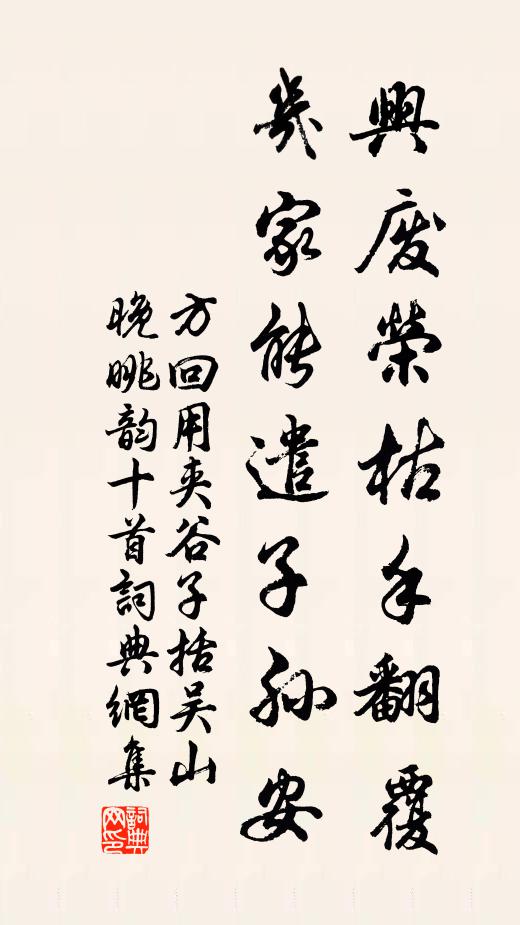 興廢榮枯手翻覆
幾家能遣子孫安
方回用夾谷子括吴山
晚眺韵十首詞典網集
詞典